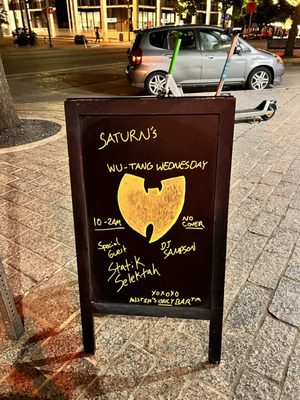 SATURN'S
WU-TANG WEDNESDAY
10-2AM
NO
COVER
Special
Guest
DJ
SAMPSON
Statik
Selektah
XOXOXO
AUSTIN'S ONLY BAR™